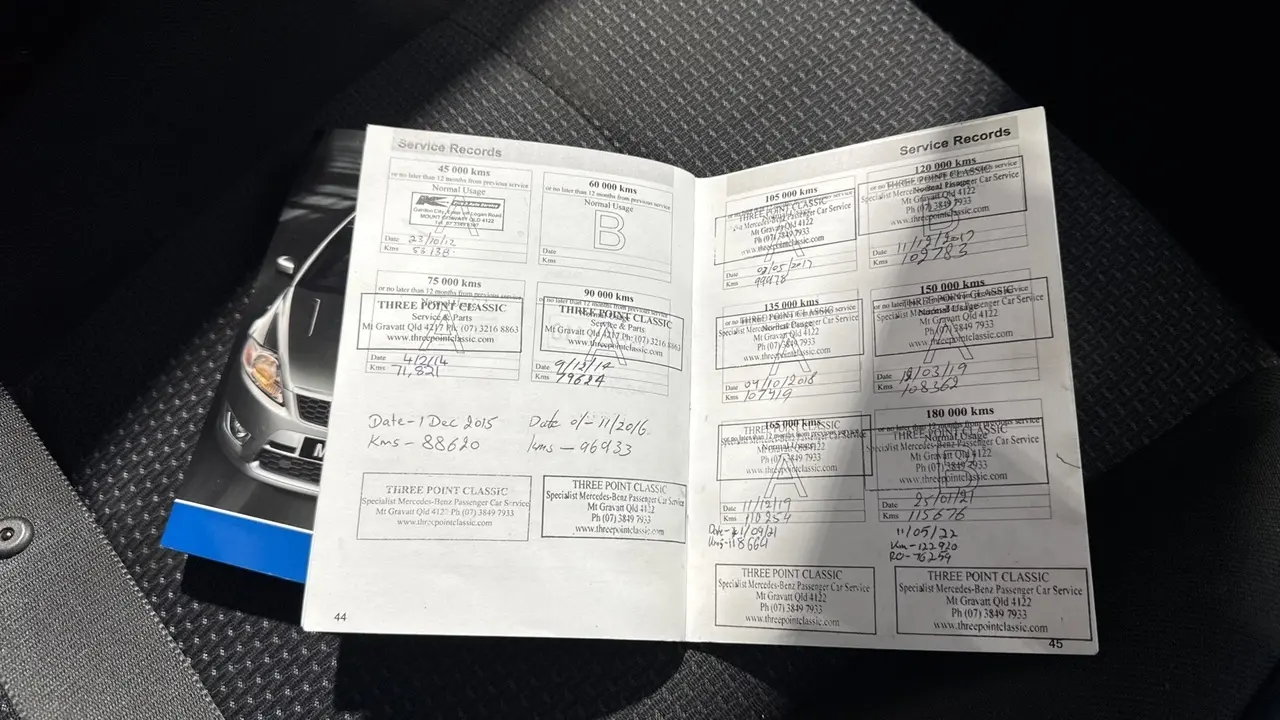 Service Records
45 000 kms
or no later than 12 months from previous service
Normal Usage
A
MOUNT GRAVATT QLD 4122
Date 23/10/12
Kms
60 000 kms
or no later than 12 months from previous service
Normal Usage
B
Date
Kms
75 000 kms
or no later than 12 months from previous service
Normal Usage
THREE POINT CLASSIC
Service & Parts
Mt Gravatt Qld 4217 Ph: (07) 3216 8863
www.threepointclassic.com
A
Date 4/2/14
Kms 71,821
90 000 kms
or no later than 12 months from previous service
THREE POINT CLASSIC
Service & Parts
Mt Gravatt Qld 4217 Ph: (07) 3216 8863
www.threepointclassic.com
A
Date 9/12/14
Kms 79624
Date - 1 Dec 2015
Kms - 88620
Date 01-11/2016
kms - 96933
THREE POINT CLASSIC
Specialist Mercedes-Benz Passenger Car Service
Mt Gravatt Qld 4122 Ph (07) 3849 7933
www.threepointclassic.com
THREE POINT CLASSIC
Specialist Mercedes-Benz Passenger Car Service
Mt Gravatt Qld 4122
Ph (07) 3849 7933
www.threepointclassic.com
44
Service Records
105 000 kms
THREE POINT CLASSIC
Mercedes-Benz Passenger Car Service
Mt Gravatt Qld 4122
Ph (07) 3849 7933
www.threepointclassic.com
A
Date /05/2017
Kms 99478
120 000 kms
THREE POINT CLASSIC
Specialist Mercedes-Benz Passenger Car Service
Mt Gravatt Qld 4122
Ph (07) 3849 7933
www.threepointclassic.com
B
Date 11/12/2017
Kms 102783
135 000 kms
THREE POINT CLASSIC
Normal Usage
Specialist Mercedes-Benz Passenger Car Service
Mt Gravatt Qld 4122
Ph (07) 3849 7933
www.threepointclassic.com
A
Date 04/10/2018
Kms 107419
150 000 kms
THREE POINT CLASSIC
Normal Usage
Specialist Mercedes-Benz Passenger Car Service
Mt Gravatt Qld 4122
Ph (07) 3849 7933
www.threepointclassic.com
A
Date /03/19
Kms 108362
165 000 kms
THREE POINT CLASSIC
Normal Usage
Specialist Mercedes-Benz Passenger Car Service
Mt Gravatt Qld 4122
Ph (07) 3849 7933
www.threepointclassic.com
A
Date 11/12/19
Kms 110254
Date- /09/21
Kms-118664
180 000 kms
THREE POINT CLASSIC
Normal Usage
Specialist Mercedes-Benz Passenger Car Service
Mt Gravatt Qld 4122
Ph (07) 3849 7933
www.threepointclassic.com
B
25/01/21
Kms 115676
11/05/22
Km-122920
RO-76259
THREE POINT CLASSIC
Specialist Mercedes-Benz Passenger Car Service
Mt Gravatt Qld 4122
Ph (07) 3849 7933
www.threepointclassic.com
THREE POINT CLASSIC
Specialist Mercedes-Benz Passenger Car Service
Mt Gravatt Qld 4122
Ph (07) 3849 7933
www.threepointclassic.com
45